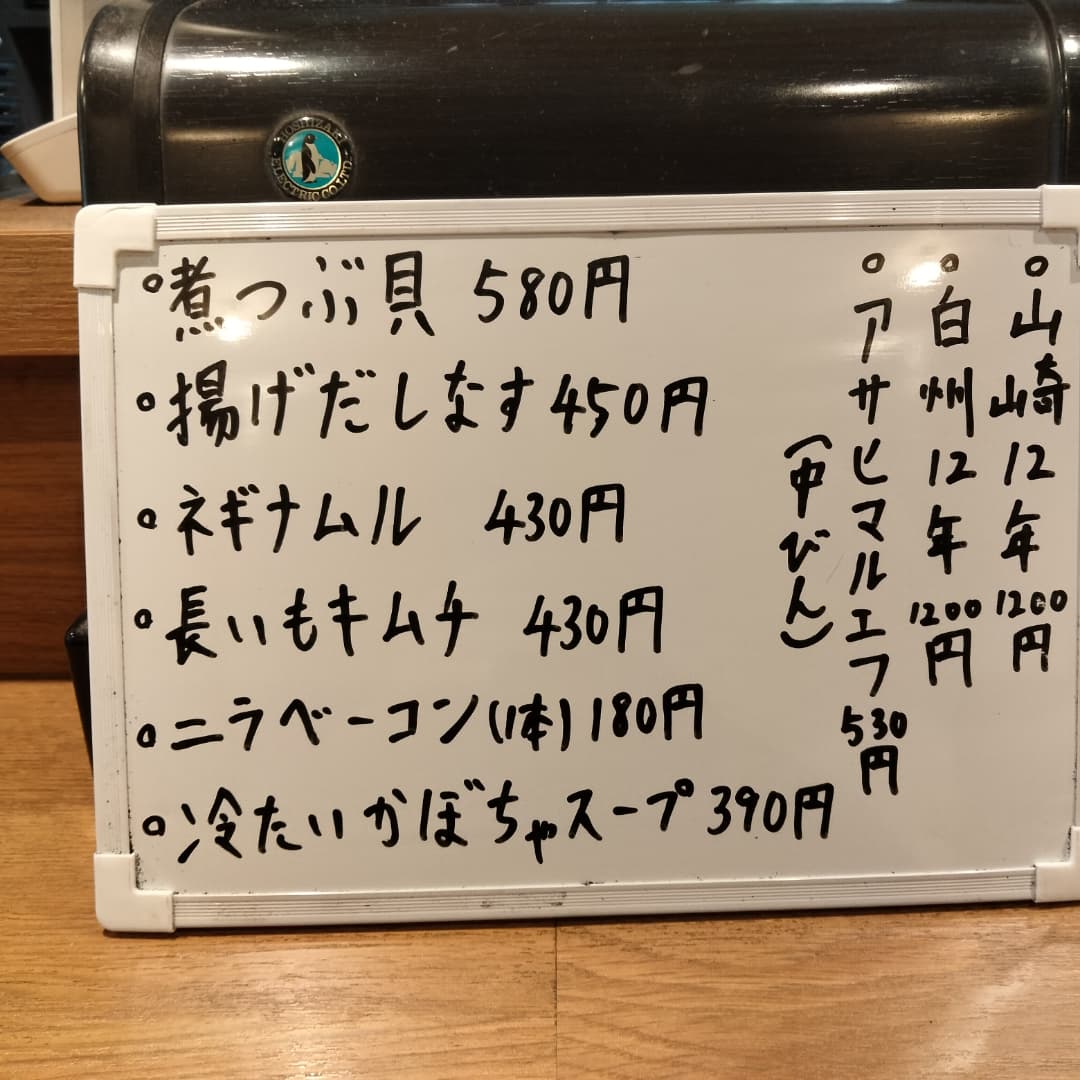 HOSHIZAKI
ELECTRIC CO.,LTD.
。煮つぶ貝 580円
。揚げだしなす 450円
。ネギナムル 430円
。長いもキムチ 430円
。ニラベーコン(1本) 180円
。冷たいかぼちゃスープ 390円
。山崎12年 1200円
。白州12年 1200円
。アサヒマルエフ 530円
(中びん)